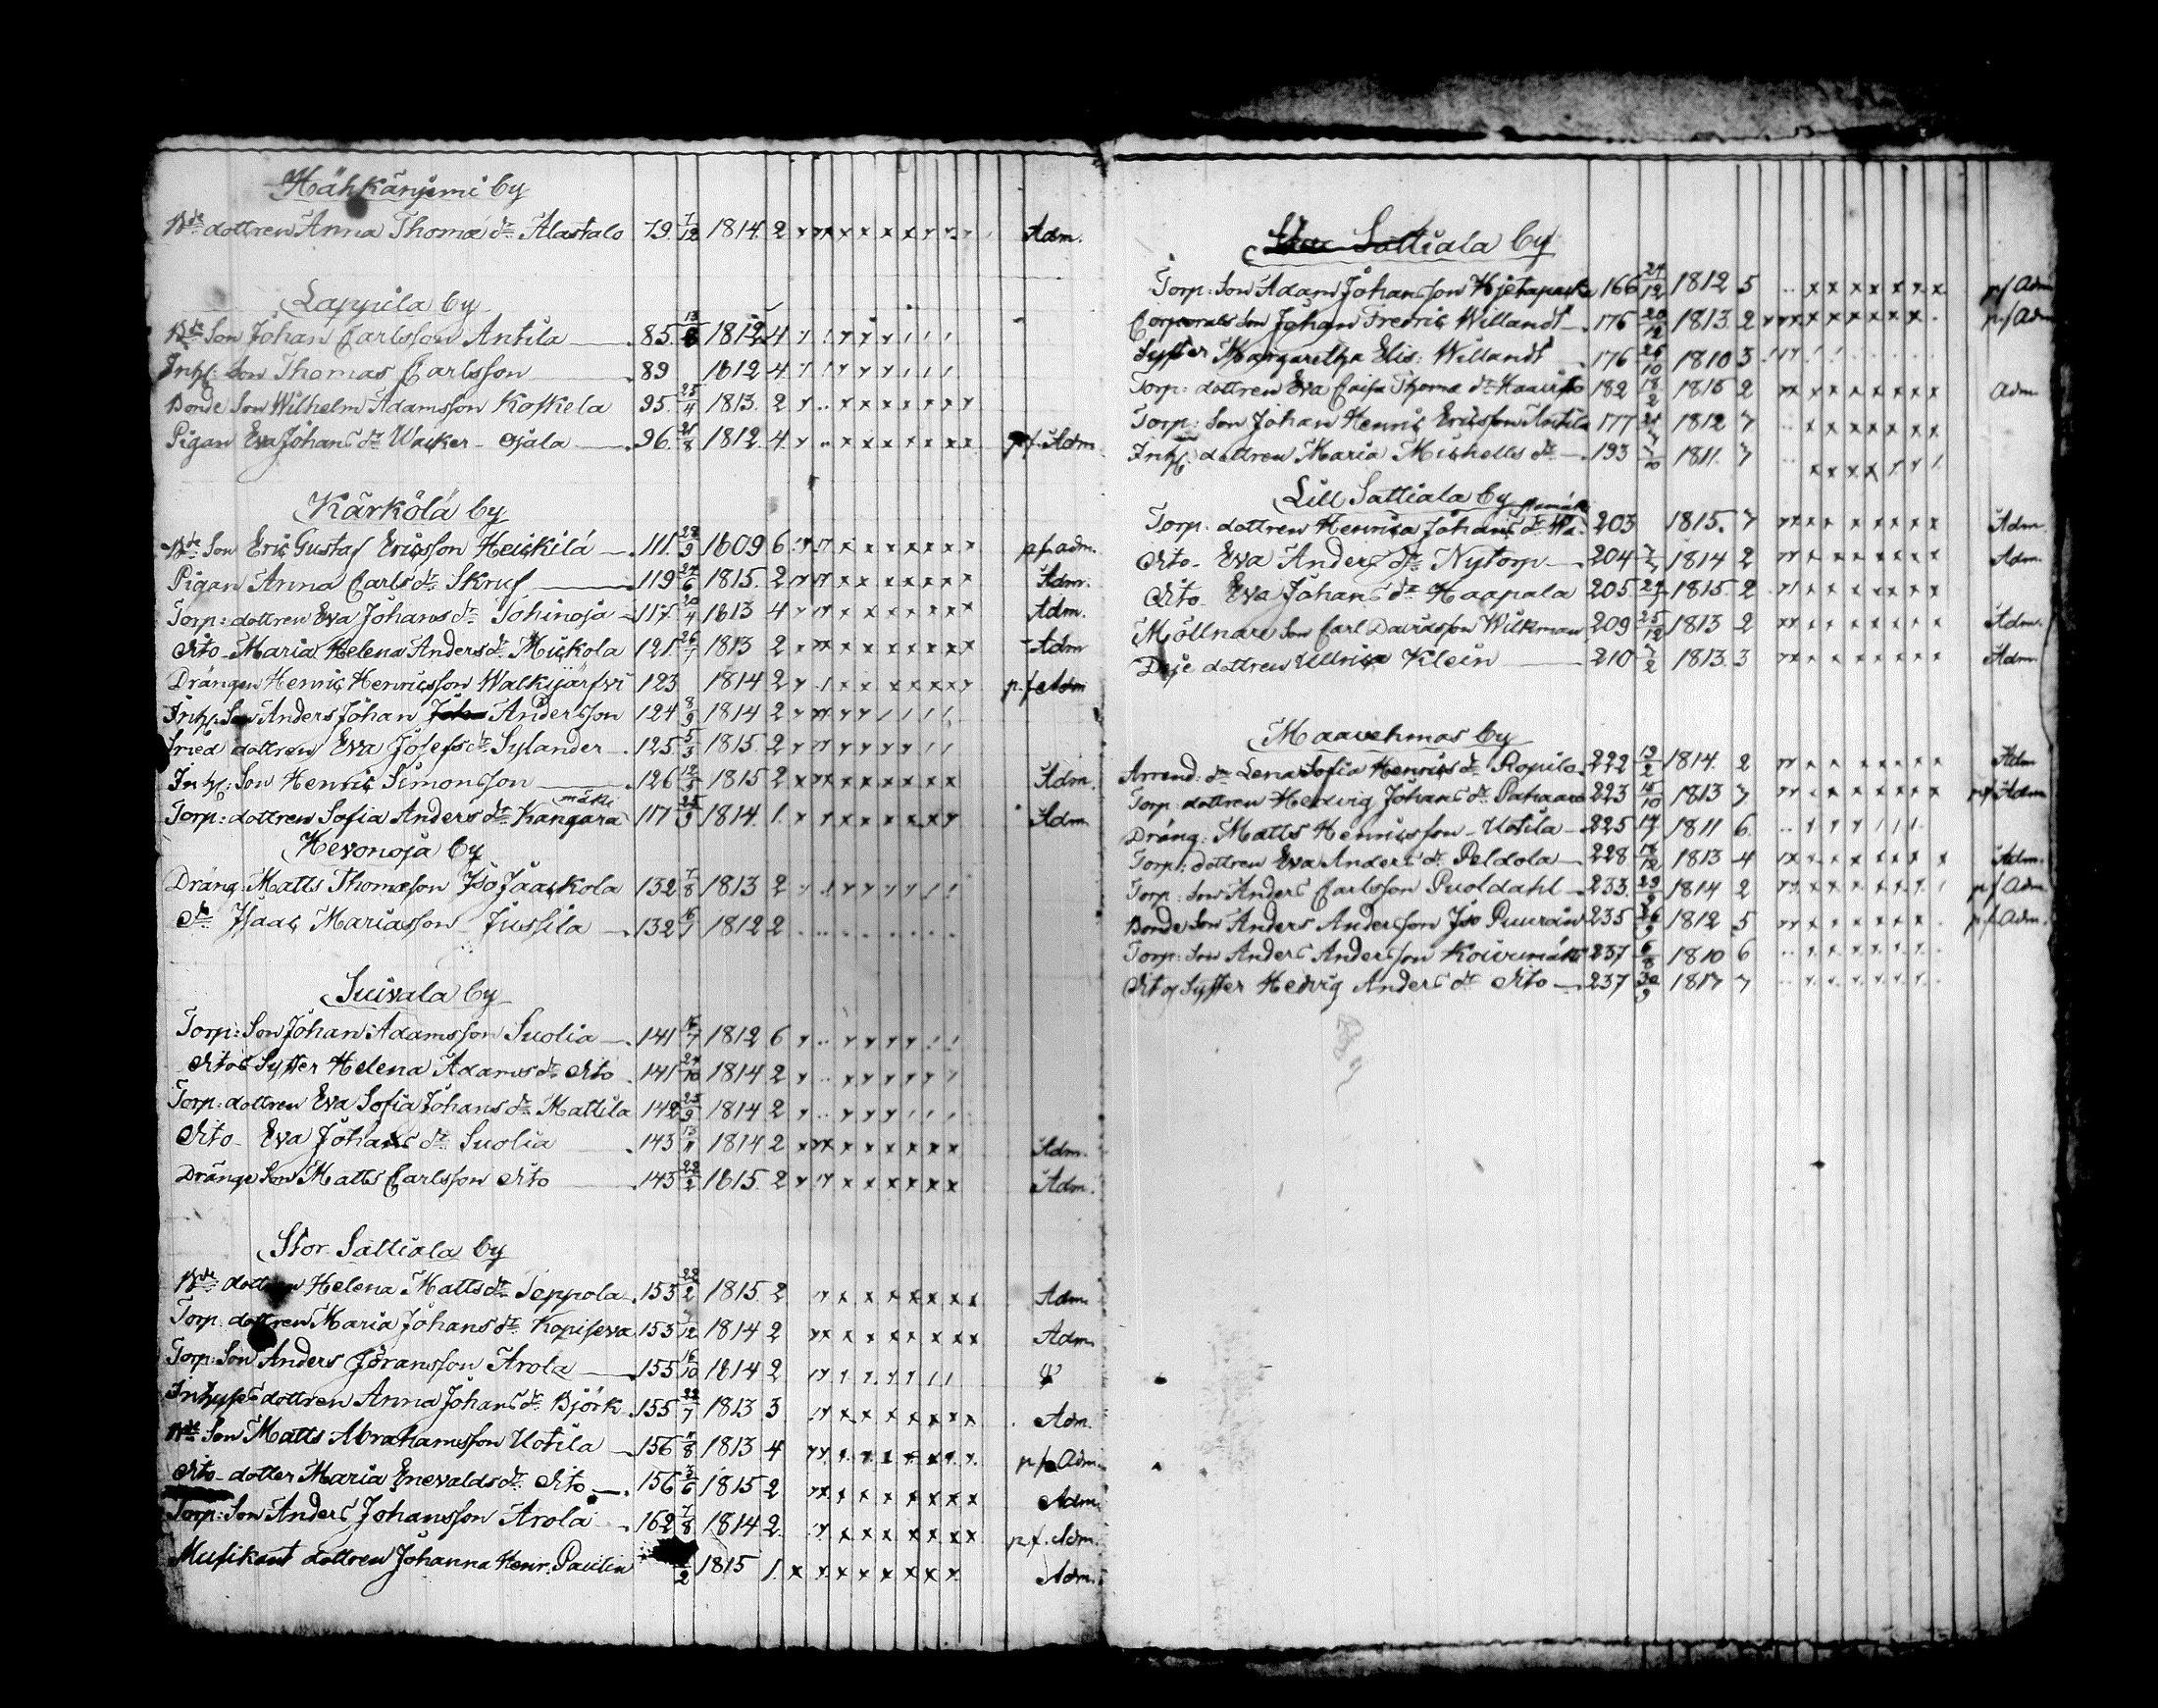 Hähkäniemi by
Bde dottren Anna Thomæ dr Alastalo 79. 7/12 1814. 2 Adm.
Lappila by
Bde Son Johan Carlsson Antila 85. 1812 4
Inhs: Son Thomas Carlsson 89 1812 4
Bonde Son Wilhelm Adamsson Koskela 95. 25/4 1813. 2
Pigan Eva Johans dr Wacker Ojala 96. 21/8 1812. 4 p.f. Adm
Kärkölä by
Bde Son Eric Gustaf Ericsson Heickilä 111. 28/9 1809 6 p.f. adm.
Pigan Anna Carls dr Skruf 119 24/6 1815. 2 Adm.
Torp: dottren Eva Johans dr Tohinoja 117. 20/4 1813 4 Adm.
Dito Maria Helena Anders dr Mickola 121. 26/7 1813 2 Adm
Drängen Henric Henricsson Walkjärfvi 123 1814 2 p.f Adm
Inhs. Son Anders Johan Andersson 124 8/9 1814 2
dottren Eva Josefs dr Sylander 125 5/3 1815. 2
Inhs: Son Henric Simonsson 126 12/5 1815 2 Adm.
Torp: dottren Sofia Anders dr Kangara mäki 117 25/9 1814. 1. Adm.
Hevonoja by
Dräng. Matts Thomæson Iso Jaackola 132 7/8 1813 2
Dto Isaac Mariasson Jussila 132 16/7 1812 2
Suivala by
Torp: Son Johan Adamsson Suolia 141 16/7 1812 6
Ditos Syster Helena Adams dr Dito 141 24/10 1814 2
Torp: dottren Eva Sofia Johans dr Mattila 142 25/9 1814 2
Dito Eva Johans dr Suolia 143 13/11 1814 2 Adm.
Dränge Son Matts Carlsson Dito 143 22/2 1815. 2 Adm.
Stor Sattiala by
Bde dottren Helena Matts dr Seppola 153 22/2 1815 2 Adm.
Torp. dottren Maria Johans dr Kopiseva 153 1814 2 Adm.
Torp: Son Anders Jöransson Arola 155 16/10 1814 2
Inhyses dottren Anna Johans dr Björk 155 22/7 1813 3 Adm.
Bde Son Matts Abrahamsson Uotila 156 11/8 1813 4 p.f. Adm.
Dito dotter Maria Enevalds dr Dito 156 3/6 1815 2 Adm.
Torp: Son Anders Johansson Arola 162 7/8 1814 2. p.f. Adm.
Musikant dottren Johanna Henr. Paulin 1815 1. Adm.
Sattiala by
Torp: Son Adam Johansson 166 24/12 1812 5 p.f Adm
Corporals Son Johan Fredric Willandt 176 20/12 1813. 2 p.f Adm
Syster Margaretha Elis: Willandt 176 26/10 1810 3
Torp: dottren Eva Caisa Thomæ dr Haavisto 182 18/2 1815 2 Adm
Torp: Son Johan Henric Ericsson Antila 177 1812 7
Inhs: dottren Maria Michells dr 193 7/10 1811. 7
Lill Sattiala by
Torp. dottren Henrica Johans dr 203 1815. 7 Adm.
Dito Eva Anders dr Nytorp 204 7/7 1814 2 Adm.
Dito Eva Johans dr Haapala 205 1815. 2
Möllnare Son Carl Davidsson Wilkman 209 25/12 1813 2 Adm.
Deje dottren Ullrica Klein 210 7/2 1813. 3 Adm.
Maavehmas by
Arrend: dr Lena Sofia Henrics dr Ropilo 222 19/2 1814. 2 Adm
Torp dottren Hedvig Johans dr 223 15/10 1813 7 p.f Adm
Dräng: Matts Henricsson Uotila 225 1811 6
Torp: dottren Eva Anders dr Peldola 228 18/12 1813 4 Adm.
Torp: Son Anders Carlsson Puoldahl 233. 1814 2 p.f Adm.
Bonde Son Anders Andersson Iso 235 1812 5 p.f Adm.
Torp: Son Anders Andersson Koivumäki 237 6/8 1810 6
Ditos Syster Hedvig Anders dr Dito 237 30/9 7